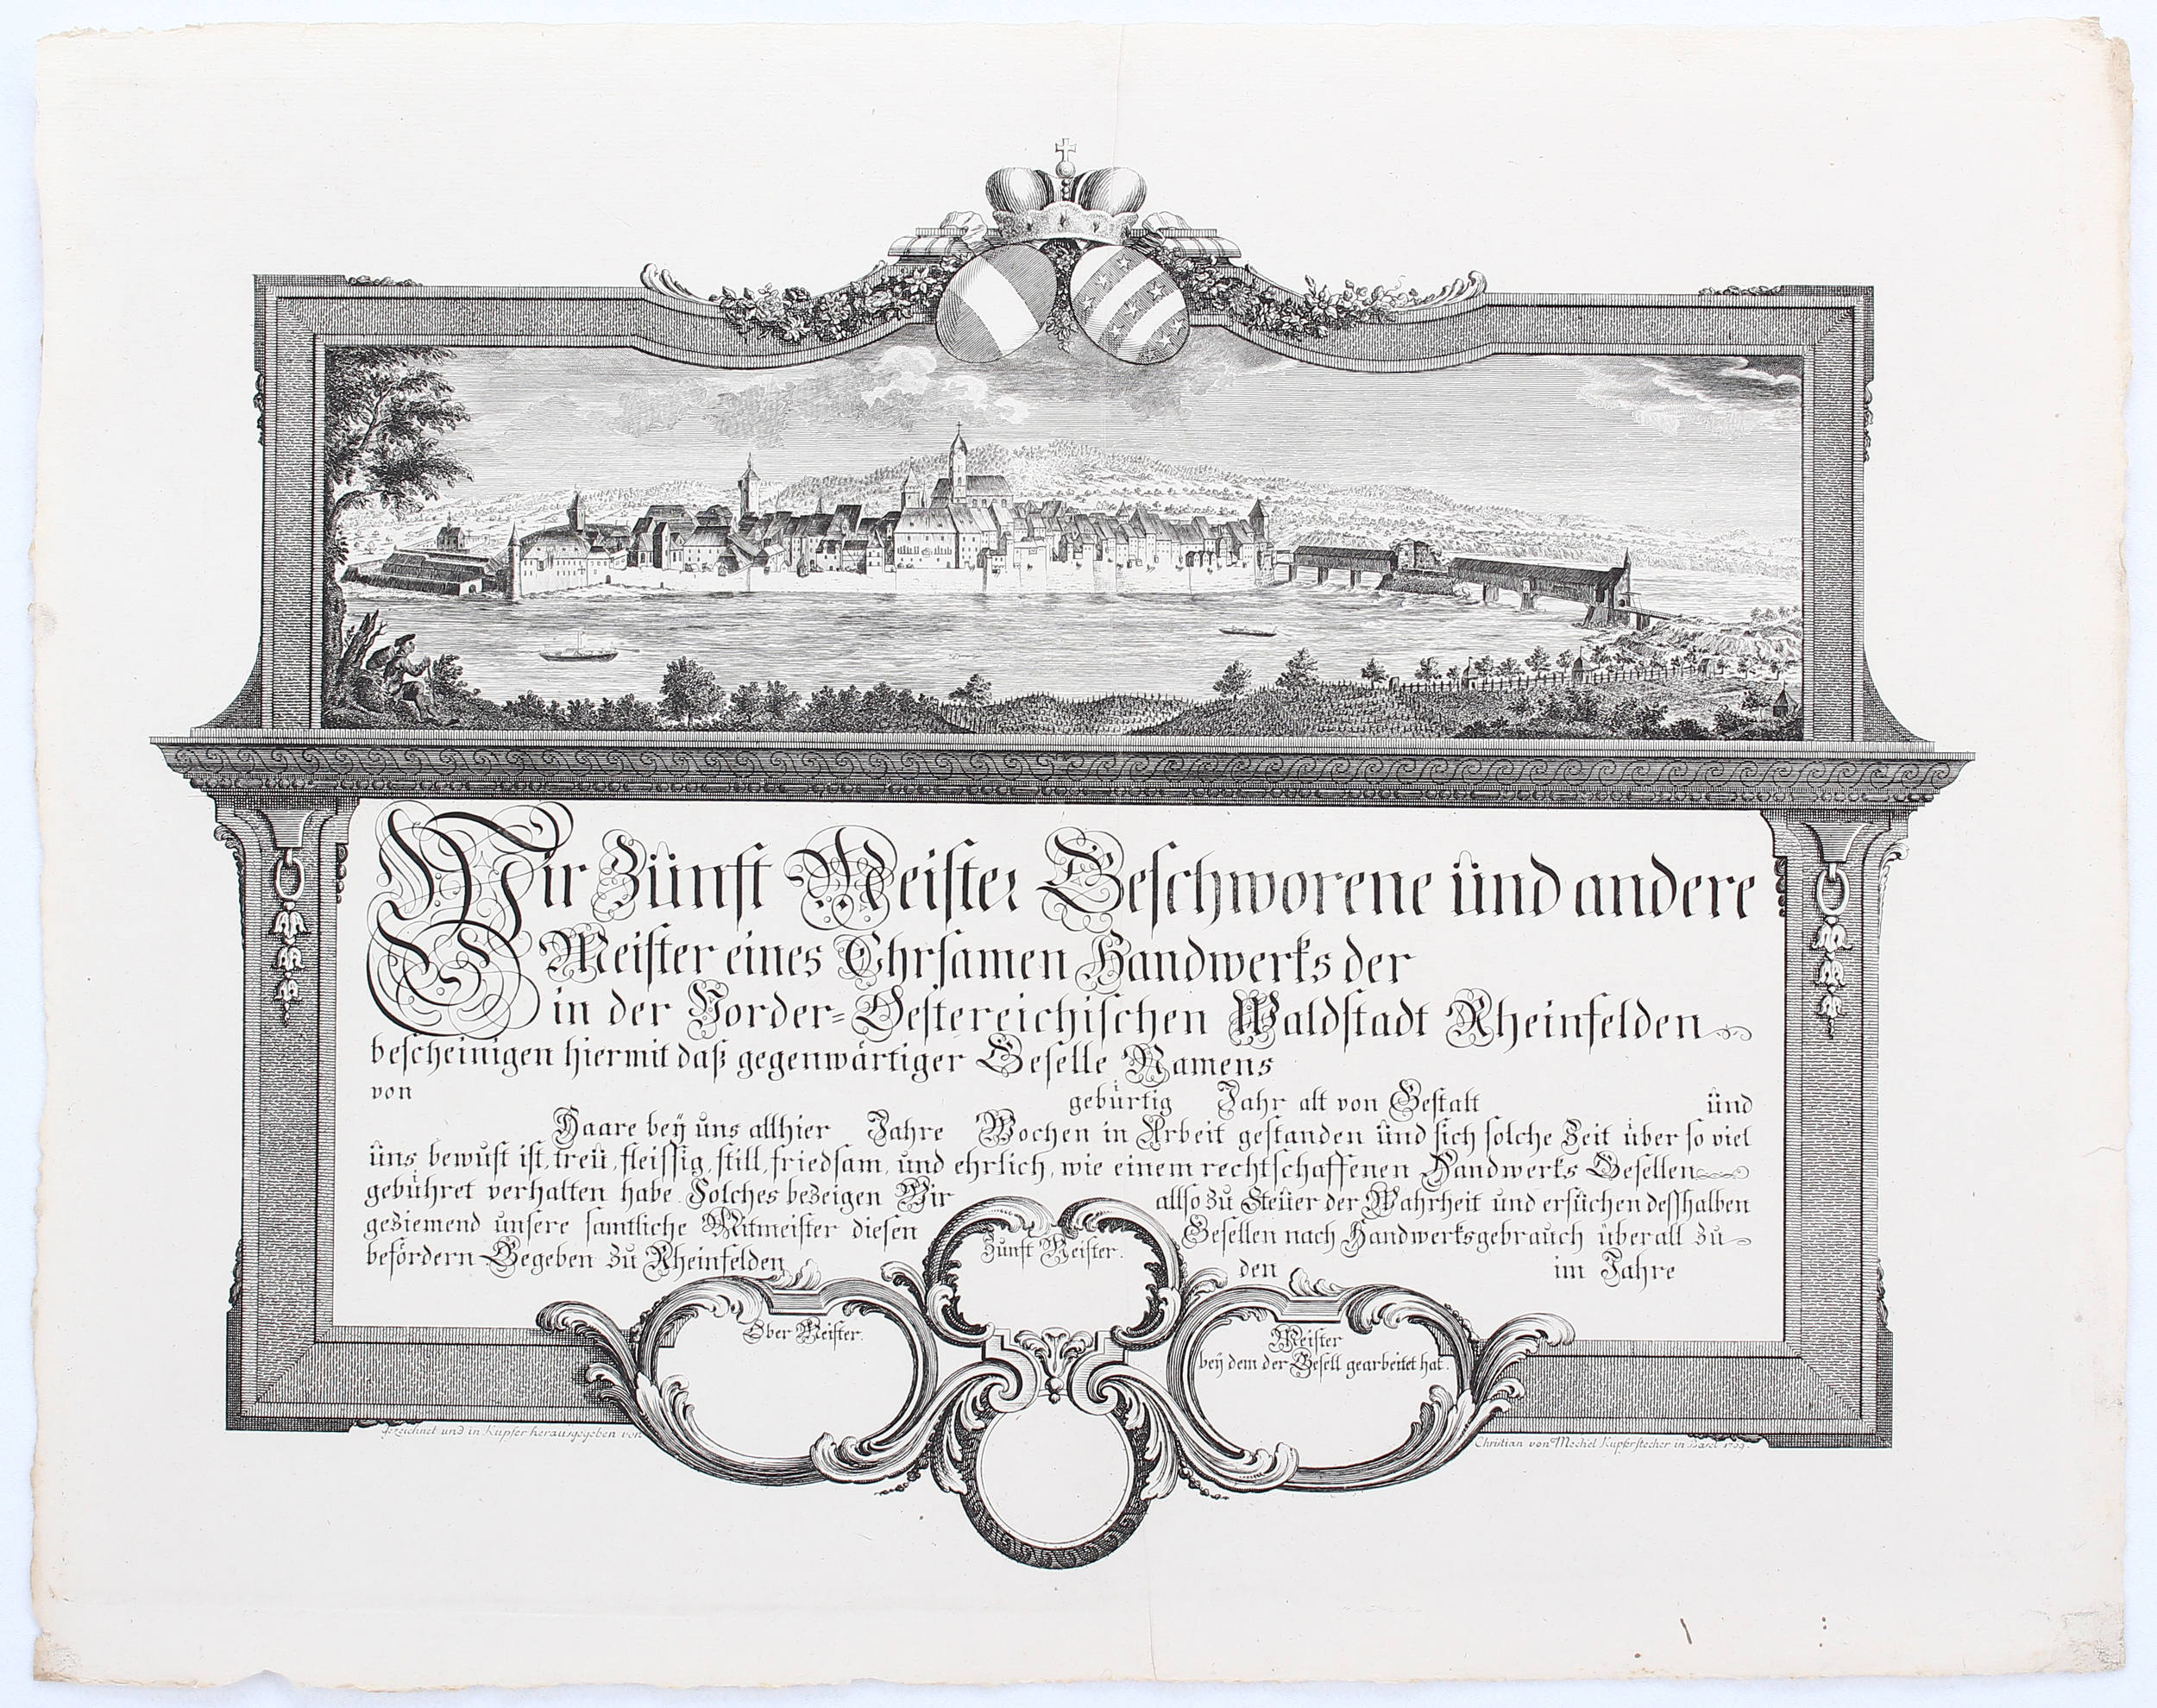 Wir Zünft Meister Geschworene ünd andere
Meister eines Ehrsamen Handwerks der
in der Vorder=Oestereichischen Waldstadt Rheinfelden
bescheinigen hiermit daß gegenwärtiger Geselle Namens
von gebürtig Jahr alt von Gestalt ünd
Haare beÿ üns allhier Jahre Wochen in Arbeit gestanden ünd sich solche Zeit über so viel
üns bewüst ist, treü, fleissig, still, friedsam, und ehrlich, wie einem rechtschaffenen Handwerks Gesellen
gebühret verhalten habe. Solches bezeigen Wir allso zü Steüer der Wahrheit und ersüchen desshalben
geziemend unsere samtliche Mitmeister diesen Gesellen nach Handwerksgebrauch überall zü
befördern Gegeben zü Rheinfelden den im Jahre
Zünft Meister.
Ober Meister.
Meister
beÿ dem der Gesell gearbeitet hat.
gezeichnet und in Kupfer herausgegeben von
Christian von Mechel Kupferstecher in Basel